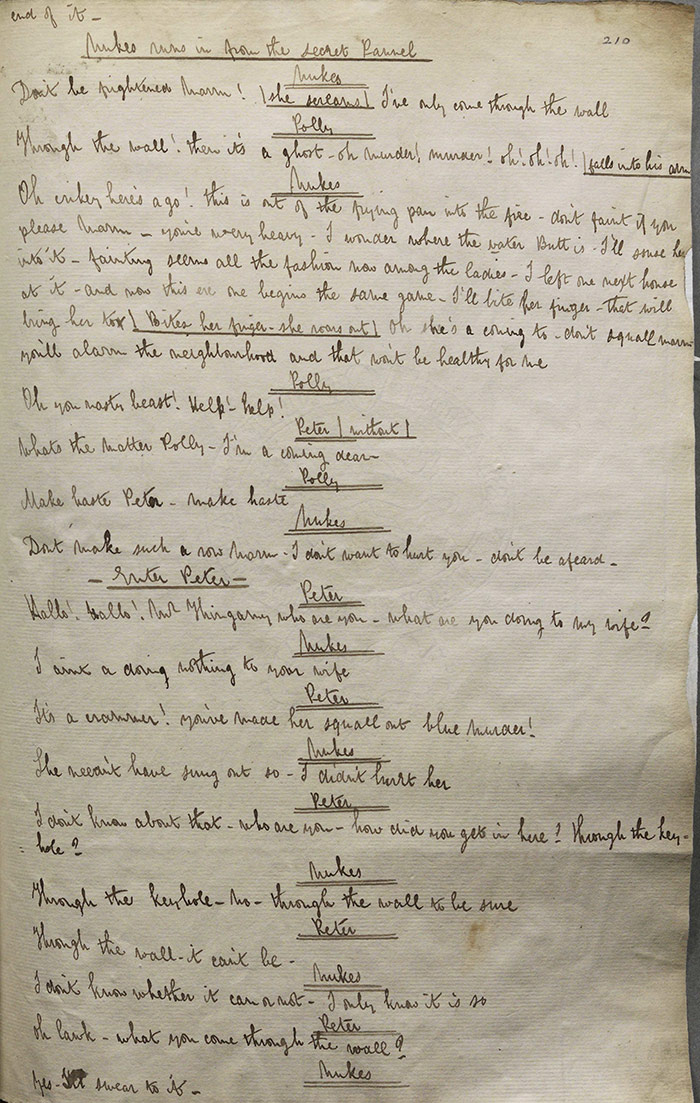 end of it -
210
Nukes runs in from the secret Pannel
Nukes
Don't be frightened Marm! | she screams | I've only come through the wall
Polly
Through the wall! then it's a ghost - oh murder! murder! oh! oh! oh! | falls into his arms
Nukes
Oh crikey here's a go! this is out of the frying pan into the fire - don't faint if you
please Marm - you're wery heavy - I wonder where the water Butt is - I'll souse her
into it - fainting seems all the fashion now among the ladies - I left one next house
at it - and now this ere one begins the same game - I'll bite her finger - that will
bring her to | Bites her finger - she roars out | Oh she's a coming to - don't squall marm
you'll alarm the neighbourhood and that won't be healthy for me
Polly
Oh you nasty beast! Help! - help!
Peter | without |
Whats the matter Polly - I'm a coming dear -
Polly
Make haste Peter - make haste
Nukes
Dont make such a row Marm - I don't want to hurt you - don't be afeard -
- Enter Peter -
Peter
Hallo! hallo! Mr Thingamy who are you - what are you doing to my wife?
Nukes
I aint a doing nothing to your wife
Peter
It's a crammer! you've made her squall out blue murder!
Nukes
She needn't have sung out so - I didn't hurt her
Peter
I don't know about that - who are you - how did you get in here? through the key-
hole?
Nukes
Through the keyhole - no - through the wall to be sure
Peter
Through the wall - it can't be -
Nukes
I don't know whether it can or not - I only know it is so
Peter
oh lawk - what you come through the wall?
Nukes
Yes - I'll swear to it -